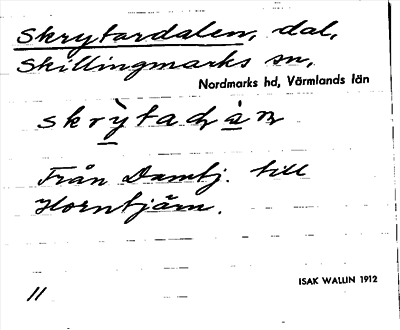 Skrytardalen, dal,
Skillingmarks sn,
Nordmarks hd, Värmlands län
Från Damtj. till
Horntjärn.
ISAK WALLIN 1912
11